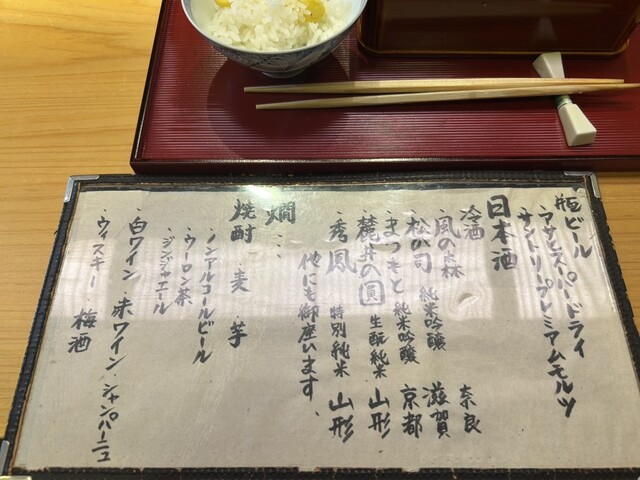 瓶ビール
・アサヒスーパードライ
・サントリープレミアムモルツ
日本酒
冷酒
・風の森 奈良
・松の司 純米吟醸 滋賀
・まつもと 純米吟醸 京都
・麓井の圓 生酛純米 山形
・秀鳳 特別純米 山形
他にも御座います。
燗...
焼酎・麦・芋
・ノンアルコールビール
・ウーロン茶
・ジンジャエール
・白ワイン・赤ワイン・シャンパーニュ
・ウィスキー・梅酒